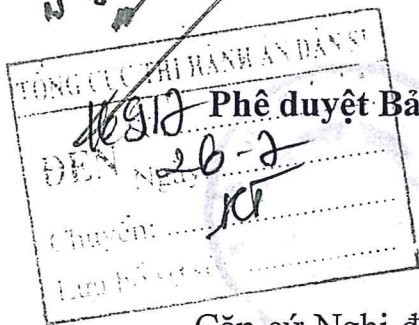 TỔNG CỤC THI HÀNH ÁN DÂN SỰ
Phê duyệt Bả
ĐẾN Ngày 26-7
Chuyển:
Lưu hồ sơ số
Căn cứ Nghị đ